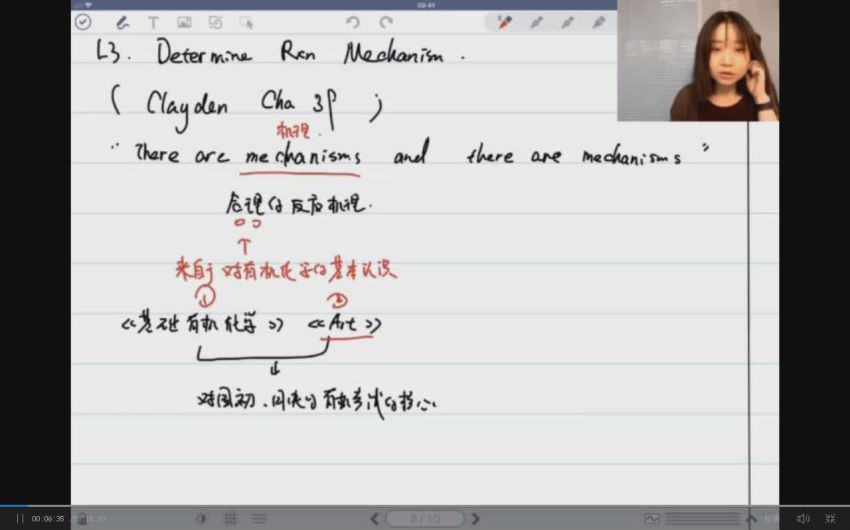 09:41
L3. Determine Rxn Mechanism.
( Clayden Cha 39 ;
机理.
"There are mechanisms and there are mechanisms"
合理的反应机理.
来自于对有机化学的基本认识
① ②
《基础有机化学》 《Art》
对国初、国决的有机考试的核心
00:06:35
8/10